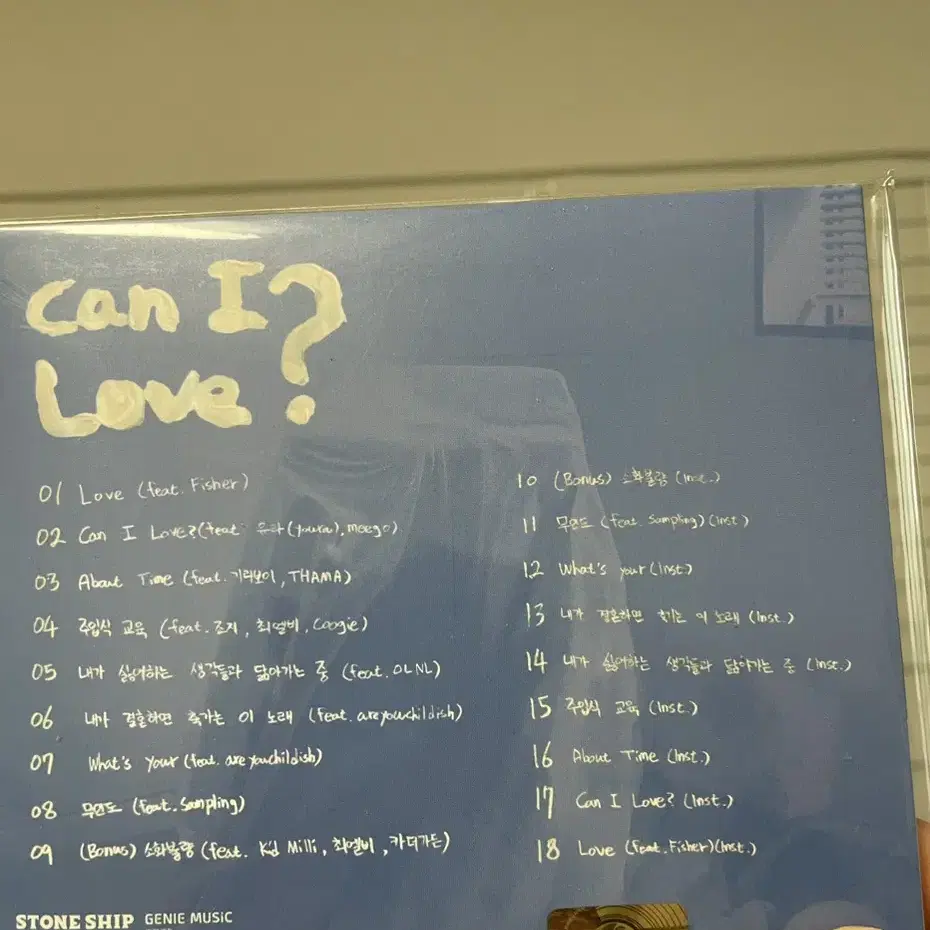 Can I
Love?
01 Love (feat. Fisher)
02 Can I Love? (feat. 유라(youra), meego)
03 About Time (feat. 기리보이, THAMA)
04 주입식 교육 (feat. 조지, 최엘비, Coogie)
05 내가 싫어하는 생각들과 닮아가는 중 (feat. OLNL)
06 내가 결혼하면 축가는 이 노래 (feat. areyouchildish)
07 What's your (feat. areyouchildish)
08 무인도 (feat. sampling)
09 (Bonus) 소화불량 (feat. Kid Milli, 최엘비, 카더가든)
10 (Bonus) 소화불량 (Inst.)
11 무인도 (feat. sampling) (Inst.)
12 What's your (Inst.)
13 내가 결혼하면 축가는 이 노래 (Inst.)
14 내가 싫어하는 생각들과 닮아가는 중 (Inst.)
15 주입식 교육 (Inst.)
16 About Time (Inst.)
17 Can I Love? (Inst.)
18 Love (feat. Fisher) (Inst.)
STONE SHIP GENIE MUSIC